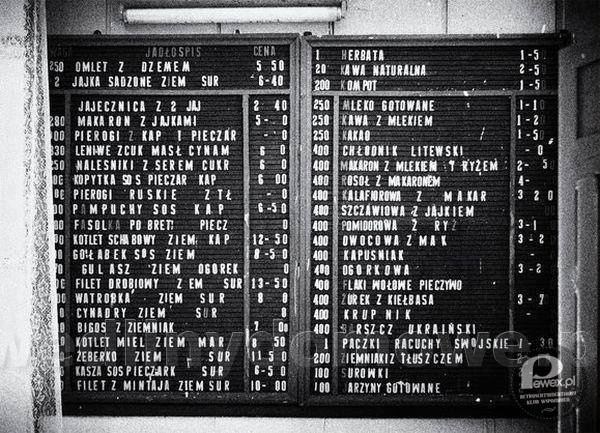 WAGA JADŁOSPIS CENA
250 OMLET Z DŻEMEM 5 50
2 JAJKA SADZONE ZIEM SUR 6-40
JAJECZNICA Z 2 JAJ 2 40
280 MAKARON Z JAJKAMI 5- 0
300 PIEROGI Z KAP I PIECZAR 0
330 LENIWE Z CUK MASŁ CYNAM 0
250 NALEŚNIKI Z SEREM CUKR 6 0
00 KOPYTKA SOS PIECZAR KAP 6 00
00 PIEROGI RUSKIE Z TŁ - 0
00 PAMPUCHY SOS KAP 6-50
80 FASOLKA PO BRET PIECZ 0
90 KOTLET SCHABOWY ZIEM KAP 12-50
GOŁĄBEK SOS ZIEM 8-50
70 GULASZ ZIEM OGOREK 0
00 FILET DROBIOWY ZIEM SUR 13-50
90 WĄTRÓBKA ZIEM SUR 8 8
00 CYNADRY ZIEM SUR 0
0 BIGOS Z ZIEMNIAK 7 00
0 KOTLET MIEL ZIEM MAR 8 50
ŻEBERKO ZIEM SUR 11 50
KASZA SOS PIECZARK SUR 6-50
FILET Z MINTAJA ZIEM SUR 10-80
1 HERBATA 1-50
20 KAWA NATURALNA 2-50
200 KOMPOT 1-50
250 MLEKO GOTOWANE 1-10
250 KAWA Z MLEKIEM 1-20
250 KAKAO 1-50
400 CHŁODNIK LITEWSKI - 0
400 MAKARON Z MLEKIEM I RYŻEM 2- 50
400 ROSÓŁ Z MAKARONEM 4-
400 KALAFIOROWA Z MAKAR 3 20
400 SZCZAWIOWA Z JAJKIEM
400 POMIDOROWA Z RYŻ 3-1
400 OWOCOWA Z MAK 3-2
400 KAPUŚNIAK
400 OGÓRKOWA 3-2
400 FLAKI WOŁOWE PIECZYWO
400 ŻUREK Z KIEŁBASĄ 3-7
400 KRUPNIK
480 BARSZCZ UKRAIŃSKI
1 PĄCZKI RACUCHY SWOJSKIE 1-30
200 ZIEMNIAKI Z TŁUSZCZEM
100 SURÓWKI
100 JARZYNY GOTOWANE
Pewex.pl
RETROSENTYMENTALNY
KLUB WSPOMNIEŃ